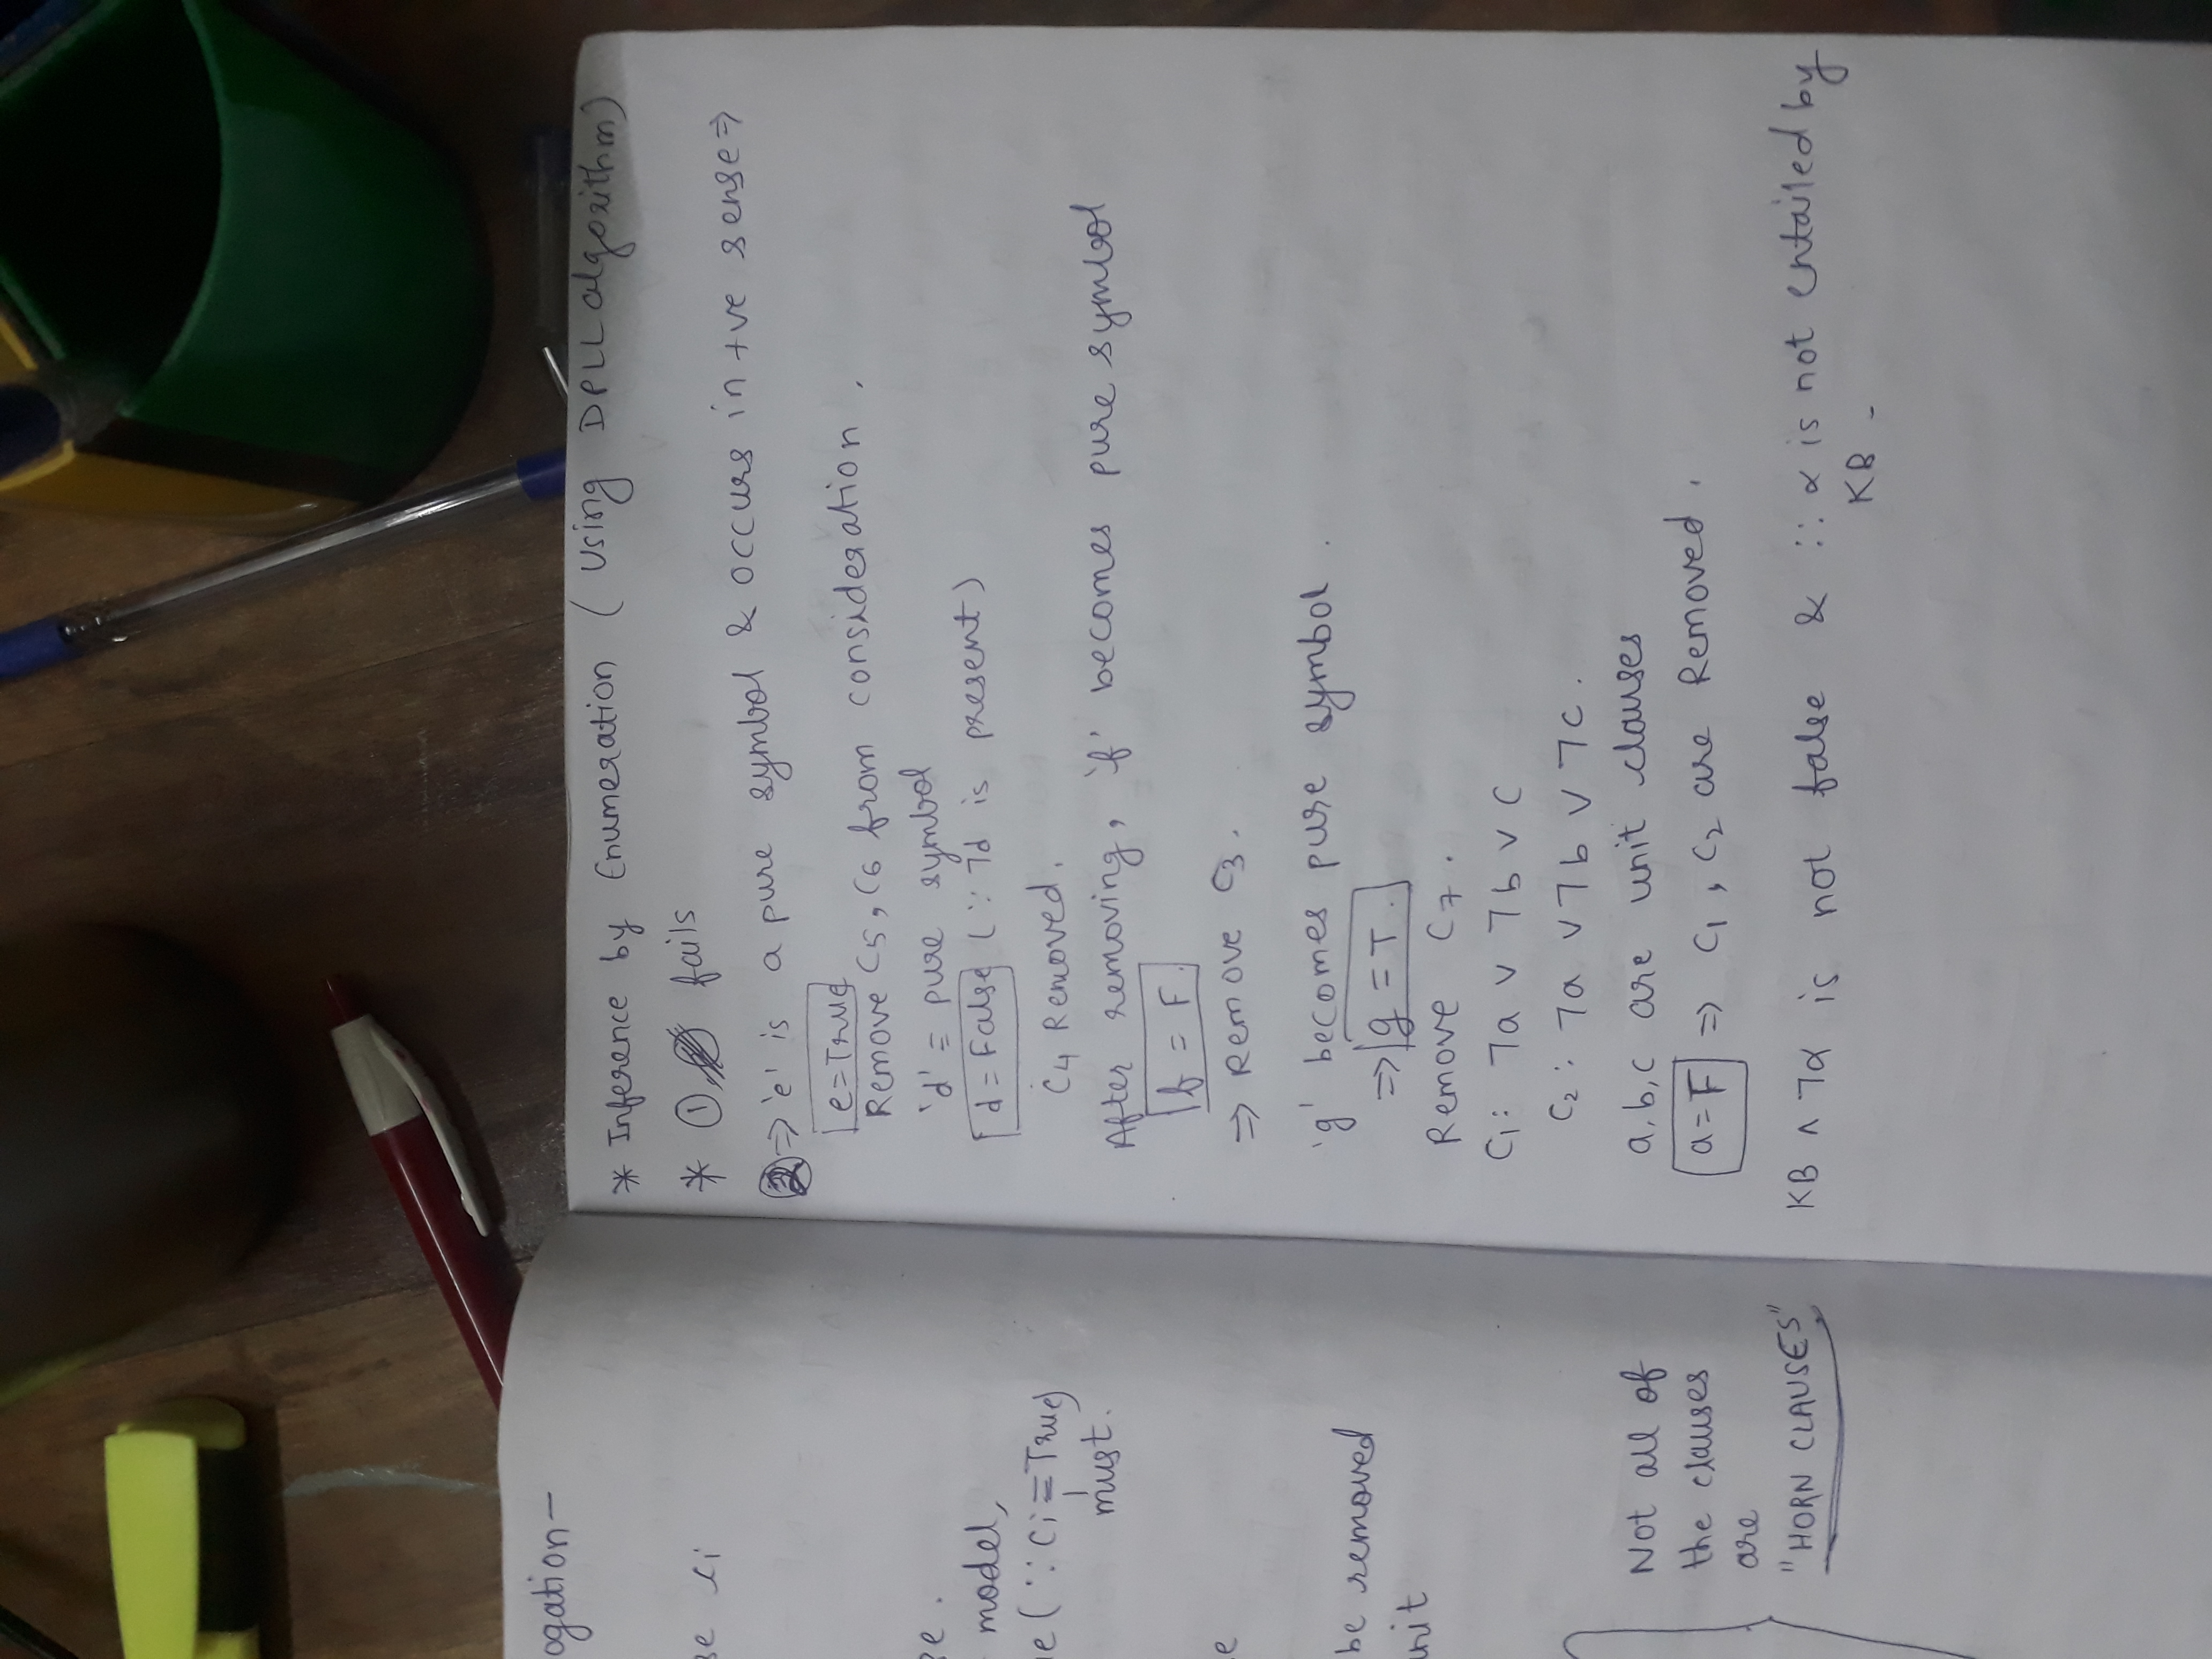 ogation-
se ci
ge.
model,
e (∵ ci = True)
must.
e
be removed
unit
Not all of
the clauses
are
"HORN CLAUSES"
* Inference by Enumeration (using DPLL algorithm)
* ① fails
② ⇒ 'e' is a pure symbol & occurs in +ve sense ⇒
e = True
Remove C5, C6 from consideration.
'd' = pure symbol
d = False (∵ ¬d is present)
C4 Removed.
After removing, 'f' becomes pure symbol
f = F.
⇒ Remove C3.
'g' becomes pure symbol.
⇒ g = T.
Remove C7.
C1: ¬a ∨ ¬b ∨ c
C2: ¬a ∨ ¬b ∨ ¬c.
a, b, c are unit clauses
a = F ⇒ C1, C2 are Removed.
KB ∧ ¬α is not false & ∴ α is not entailed by
KB.